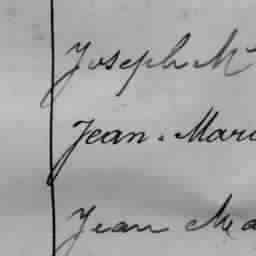 Joseph M
Jean. Mari
Jean Ma